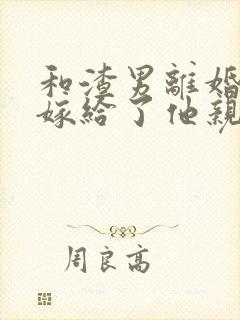 和渣男離婚
嫁給了他親
周良高